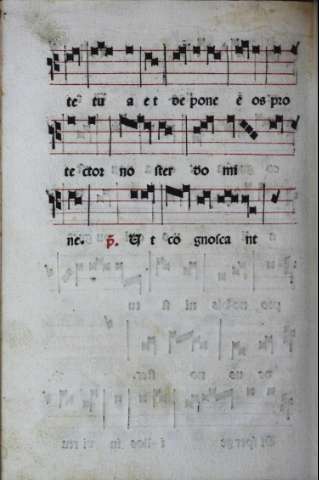 te tu a et de pone ē os pro
te ctor no ster do mi
ne. ꝟ. Ut cō gnosca nt